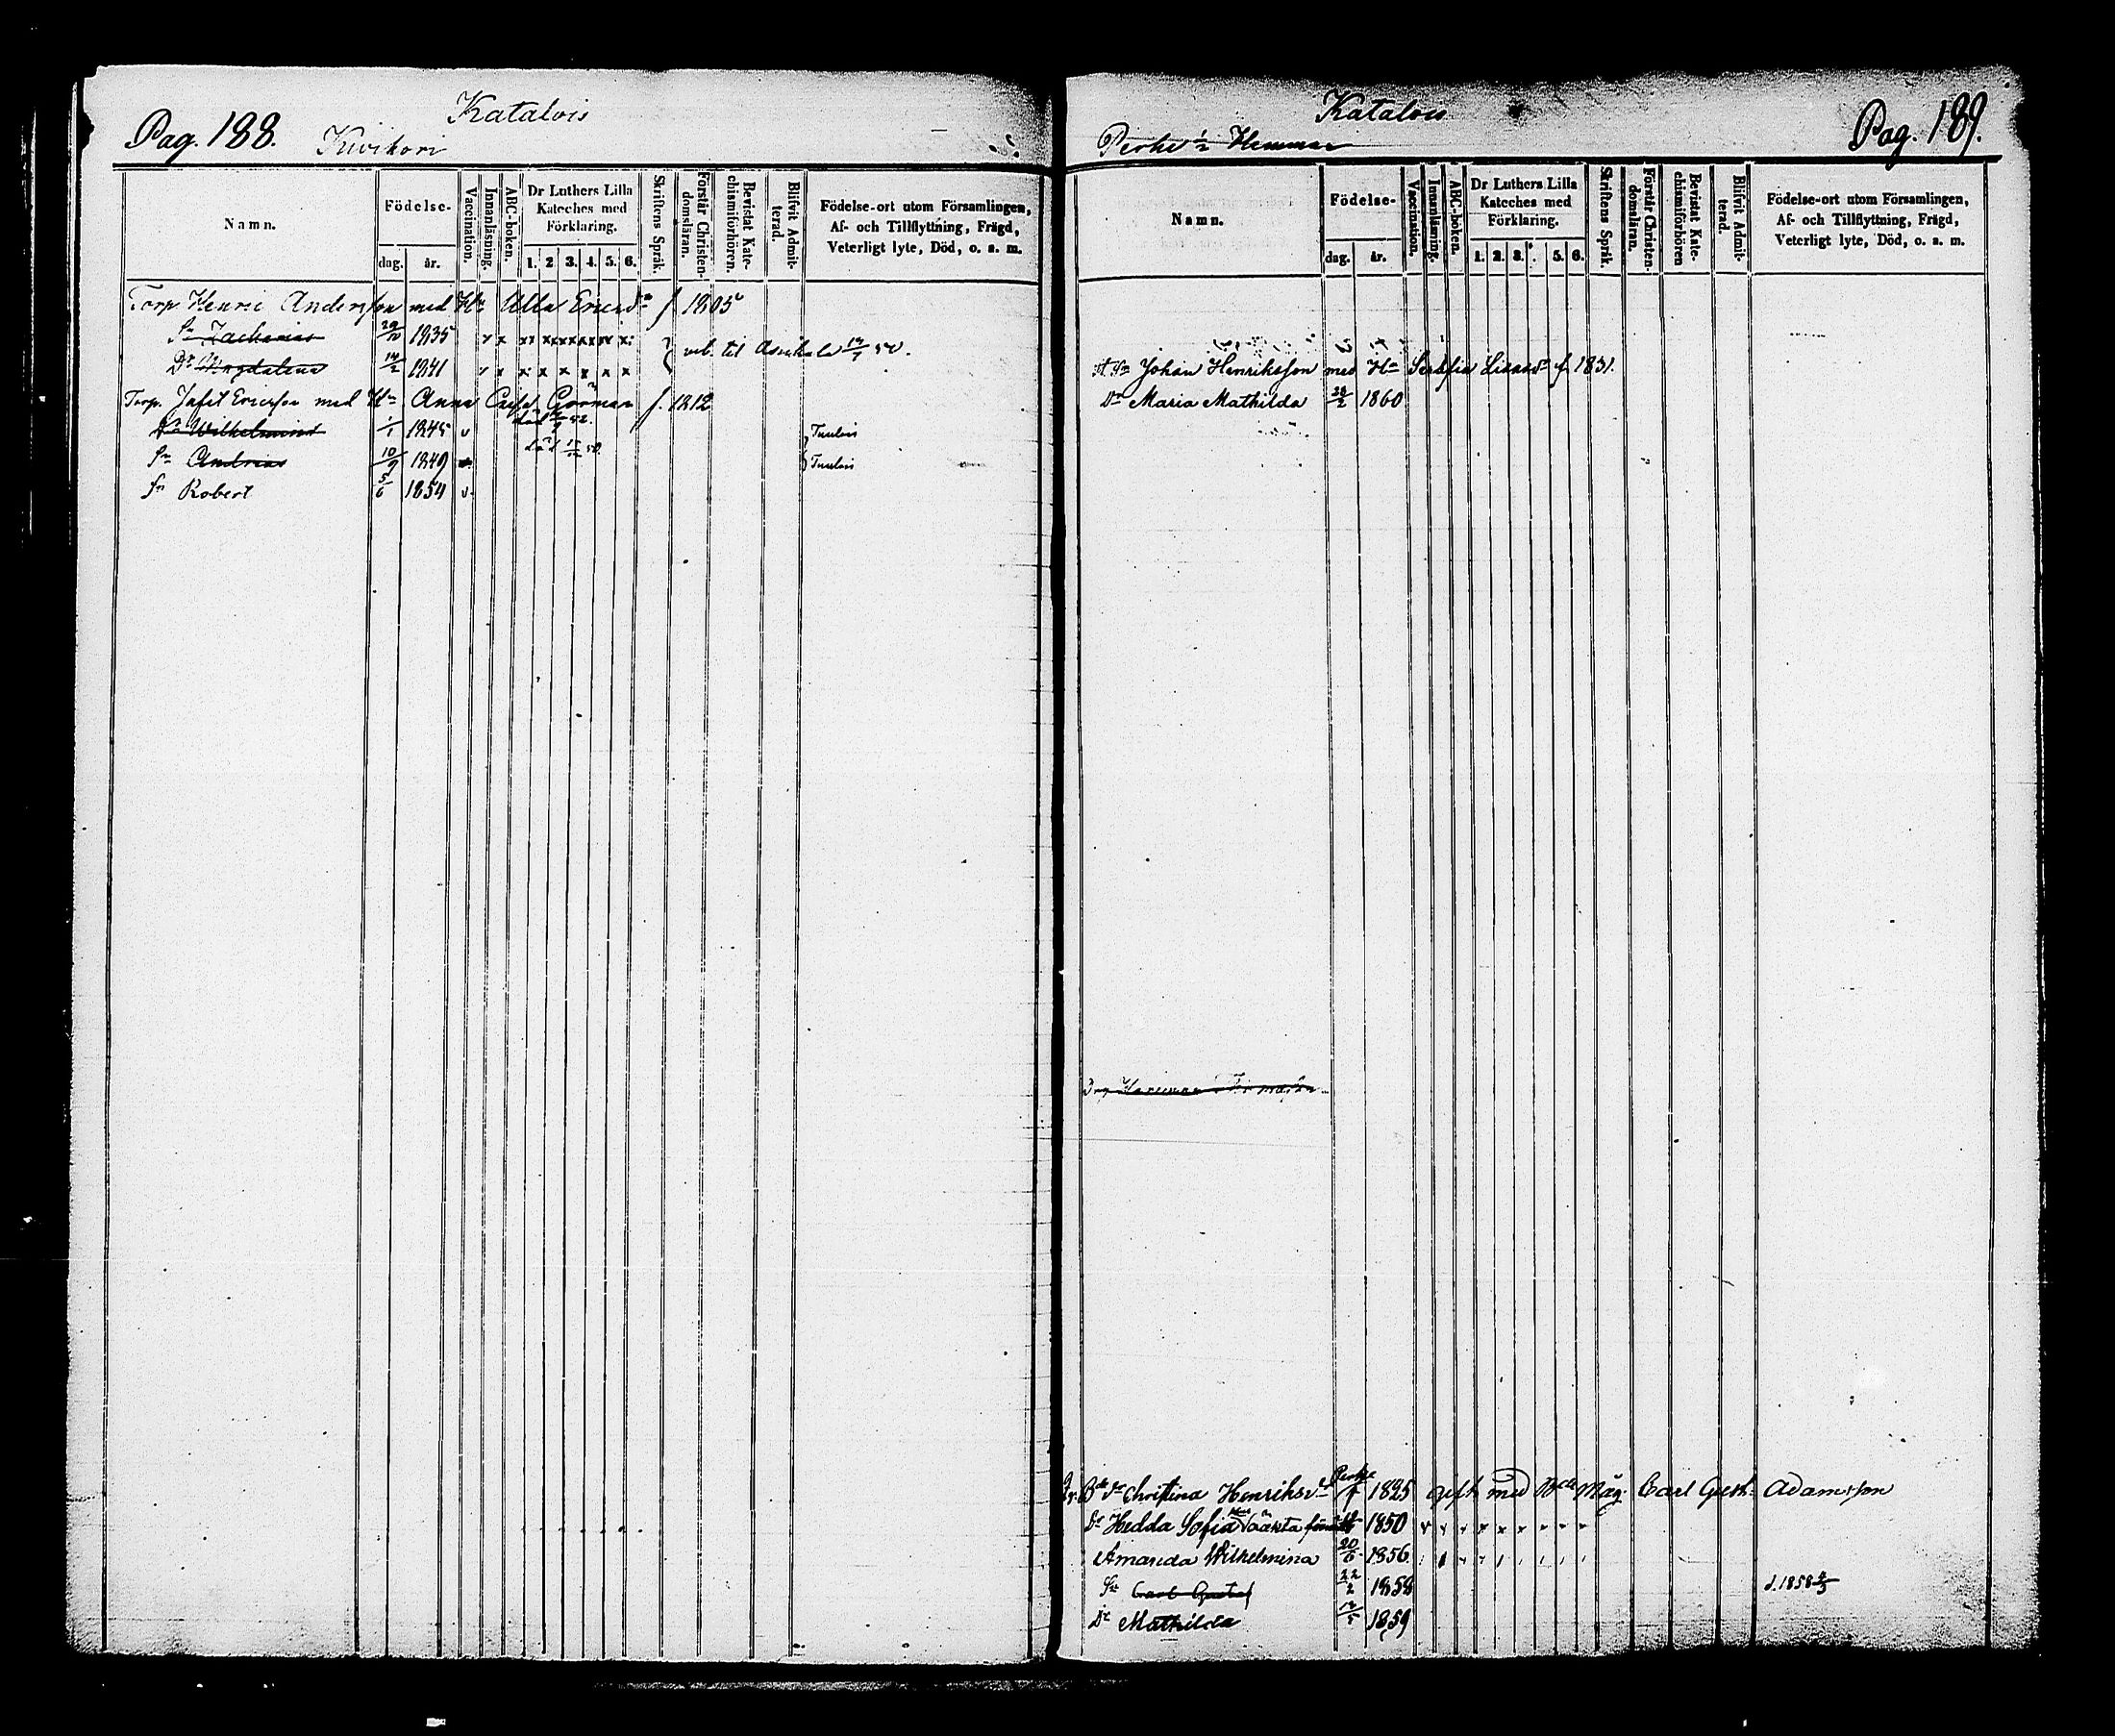 Pag. 188.
Katalois
Kivikori
Namn.
Födelse-
dag.
år.
Vaccination.
Innanläsning.
ABC-boken.
Dr Luthers Lilla
Kateches med
Förklaring.
1. 2 3. 4. 5. 6.
Skriftens Språk.
Förstår Christen-
domsläran.
Bevistat Kate-
chismiförhören.
Blifvit Admit-
terad.
Födelse-ort utom Församlingen,
Af- och Tillflyttning, Frägd,
Veterligt lyte, Död, o. s. m.
Torp Henric Andersson med Hu Ulla Ericsdr f 1805
Sn Zacharias 29/10 1835 x x x x x x x x x
Dr Magdalena 14/2 1841 x x x x x x x x
til Asikkala
Torp. Jafet Ericsson med Hu Anna Cajsa f. 1812
Dr Wilhelmina 1/1 1845 v Tuulois
Sn Andreas 10/9 1849 död Tuulois
Sn Robert 5/6 1854 v
Katalois
Perho 1/2 Hemman
Pag. 189.
Namn.
Födelse-
dag.
år.
Vaccination.
Innanläsning.
ABC-boken.
Dr Luthers Lilla
Kateches med
Förklaring.
1. 2. 3. . 5. 6.
Skriftens Språk.
Förstår Christen-
domsläran.
Bevistat Kate-
chismiförhören
Blifvit Admit-
terad.
Födelse-ort utom Församlingen,
Af- och Tillflyttning, Frägd,
Veterligt lyte, Död, o. s. m.
Johan Henriksson med Hu Serafia f 1831.
Dr Maria Mathilda 1860
Christina Henriksdr f 1825 gift med Måg Carl Gust. Adamsson
Dr Hedda Sofia oäkta 1850
Amanda Wilhelmina 20/6 1856
Sn Carl Gustaf 22/2 1858 d. 1858 4/3
Dr Mathilda 1859